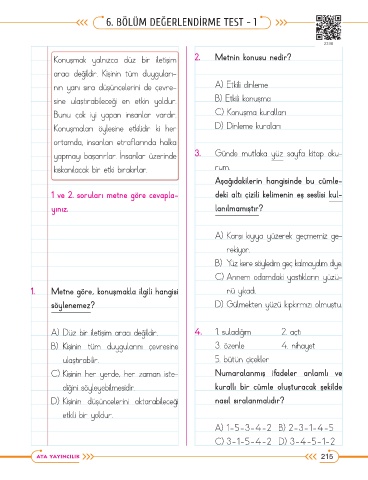 6. BÖLÜM DEĞERLENDİRME TEST - 1
Konuşmak yalnızca düz bir iletişim
aracı değildir. Kişinin tüm duyguları-
nın yanı sıra düşüncelerini de çevre-
sine ulaştırabileceği en etkin yoldur.
Bunu çok iyi yapan insanlar vardır.
Konuşmaları öylesine etkilidir ki her
ortamda, insanları etraflarında halka
yapmayı başarırlar. İnsanlar üzerinde
kıskanılacak bir etki bırakırlar.
1 ve 2. soruları metne göre cevapla-
yınız.
1. Metne göre, konuşmakla ilgili hangisi
söylenemez?
A) Düz bir iletişim aracı değildir.
B) Kişinin tüm duygularını çevresine
ulaştırabilir.
C) Kişinin her yerde, her zaman iste-
diğini söyleyebilmesidir.
D) Kişinin düşüncelerini aktarabileceği
etkili bir yoldur.
2. Metnin konusu nedir?
A) Etkili dinleme
B) Etkili konuşma
C) Konuşma kuralları
D) Dinleme kuralları
3. Günde mutlaka yüz sayfa kitap oku-
rum.
Aşağıdakilerin hangisinde bu cümle-
deki altı çizili kelimenin eş seslisi kul-
lanılmamıştır?
A) Karşı kıyıya yüzerek geçmemiz ge-
rekiyor.
B) Yüz kere söyledim geç kalmayalım diye.
C) Annem odamdaki yastıkların yüzü-
nü yıkadı.
D) Gülmekten yüzü kıpkırmızı olmuştu.
4. 1. suladığım 2. açtı
3. özenle 4. nihayet
5. bütün çiçekler
Numaralanmış ifadeler anlamlı ve
kurallı bir cümle oluşturacak şekilde
nasıl sıralanmalıdır?
A) 1-5-3-4-2 B) 2-3-1-4-5
C) 3-1-5-4-2 D) 3-4-5-1-2
ATA YAYINCILIK
215